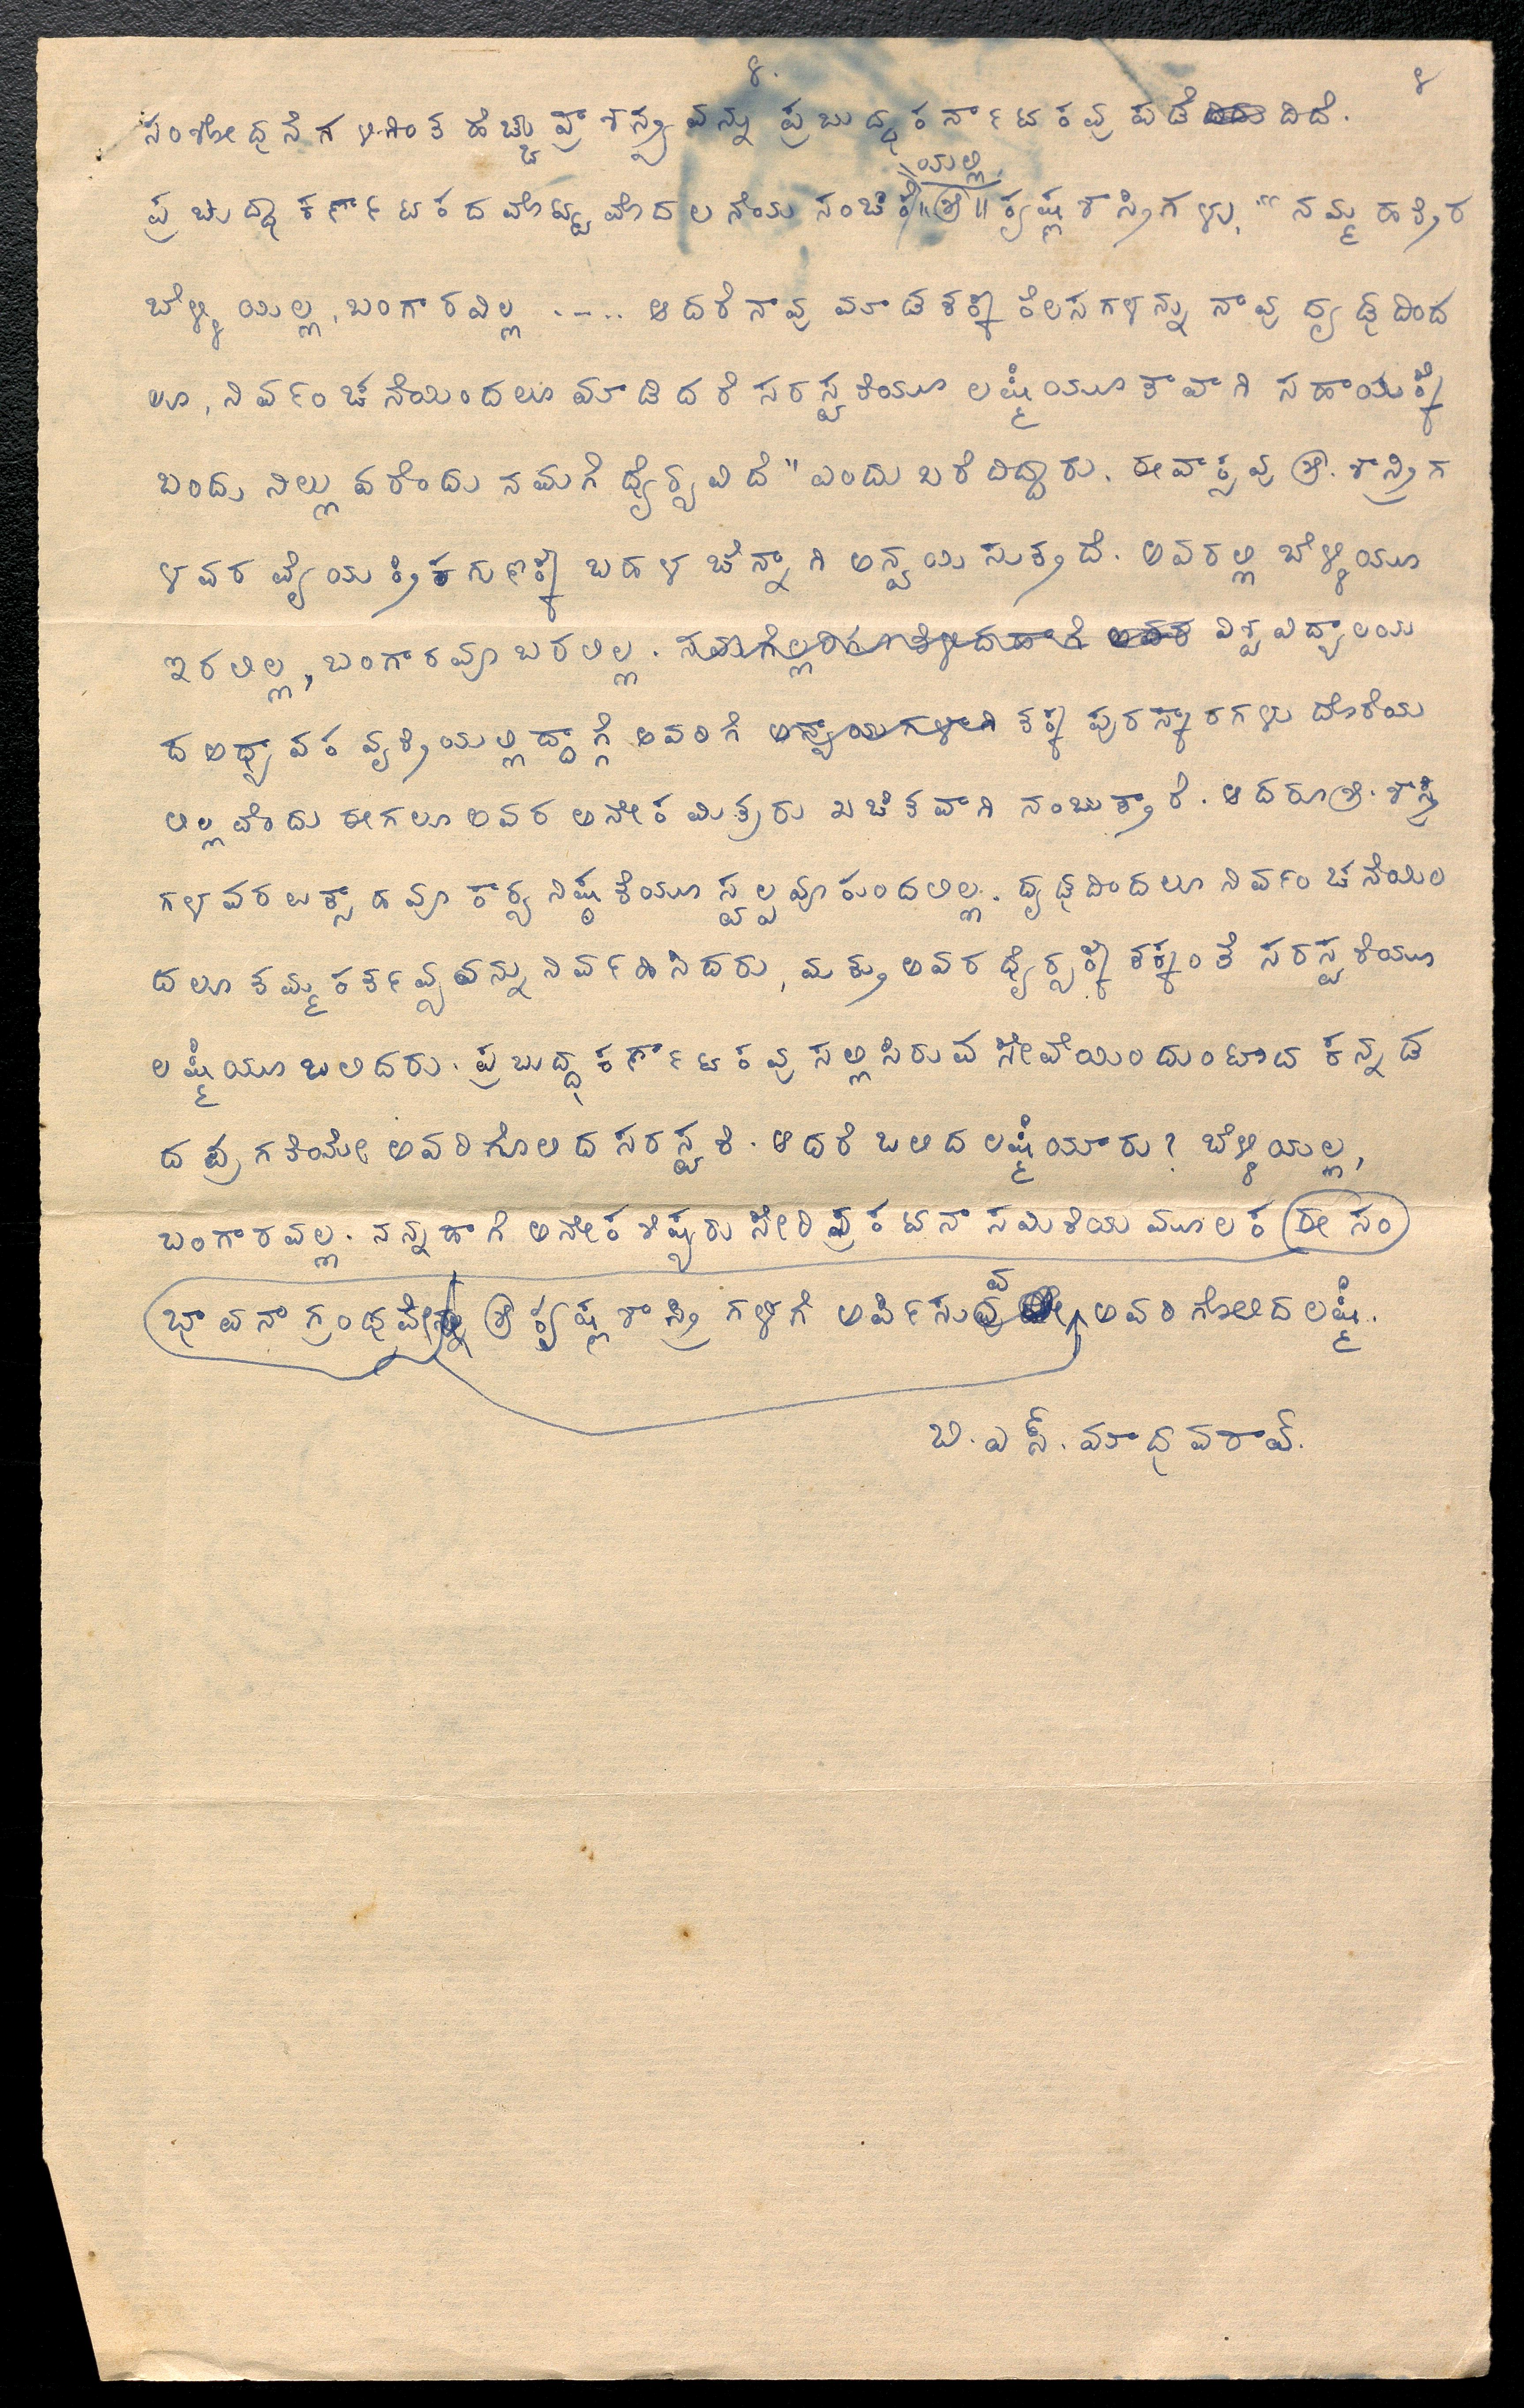 ೪. ೪
ಸಂಶೋಧನೆಗಳಿಗಿಂತ ಹೆಚ್ಚು ಪ್ರಾಶಸ್ತ್ಯವನ್ನು ಪ್ರಬುದ್ಧ ಕರ್ನಾಟಕವು ಪಡೆದಿದೆ.
ಯಲ್ಲಿ
ಪ್ರಬುದ್ಧ ಕರ್ಣಾಟಕದ ಮೊಟ್ಟಮೊದಲನೆಯ ಸಂಚಿಕೆ ಶ್ರೀ ಕೃಷ್ಣಶಾಸ್ತ್ರಿಗಳು, "ನಮ್ಮ ಹತ್ತಿರ
ಬೆಳ್ಳಿಯಿಲ್ಲ, ಬಂಗಾರವಿಲ್ಲ ..... ಆದರೆ ನಾವು ಮಾಡತಕ್ಕ ಕೆಲಸಗಳನ್ನು ನಾವು ದೃಢದಿಂದ
ಲೂ, ನಿರ್ವಂಚನೆಯಿಂದಲೂ ಮಾಡಿದರೆ ಸರಸ್ವತಿಯೂ ಲಕ್ಷ್ಮಿಯೂ ತಾವಾಗಿ ಸಹಾಯಕ್ಕೆ
ಬಂದು ನಿಲ್ಲುವರೆಂದು ನಮಗೆ ಧೈರ್ಯವಿದೆ" ಎಂದು ಬರೆದಿದ್ದಾರು. ಈ ವಾಕ್ಯವು ಶ್ರೀ. ಶಾಸ್ತ್ರಿಗ
ಳವರ ವೈಯಕ್ತಿಕ ಗುಣಕ್ಕೆ ಬಹಳ ಚೆನ್ನಾಗಿ ಅನ್ವಯಿಸುತ್ತದೆ. ಅವರಲ್ಲಿ ಬೆಳ್ಳಿಯೂ
ಇರಲಿಲ್ಲ, ಬಂಗಾರವೂ ಬರಲಿಲ್ಲ. ವಿಶ್ವವಿದ್ಯಾಲಯ
ದ ಅಧ್ಯಾಪಕ ವೃತ್ತಿಯಲ್ಲಿದ್ದಾಗ್ಗೆ ಅವರಿಗೆ ತಕ್ಕ ಪುರಸ್ಕಾರಗಳು ದೊರೆಯ
ಲಿಲ್ಲವೆಂದು ಈಗಲೂ ಅವರ ಅನೇಕ ಮಿತ್ರರು ಖಚಿತವಾಗಿ ನಂಬುತ್ತಾರೆ. ಆದರೂ ಶ್ರೀ. ಶಾಸ್ತ್ರಿ
ಗಳವರ ಉತ್ಸಾಹವೂ ಕಾರ್ಯನಿಷ್ಠತೆಯೂ ಸ್ವಲ್ಪವೂ ಕುಂದಲಿಲ್ಲ. ದೃಢದಿಂದಲೂ ನಿರ್ವಂಚನೆಯಿಂ
ದಲೂ ತಮ್ಮ ಕರ್ತವ್ಯವನ್ನು ನಿರ್ವಹಿಸಿದರು, ಮತ್ತು ಅವರ ಧೈರ್ಯಕ್ಕೆ ತಕ್ಕಂತೆ ಸರಸ್ವತಿಯೂ
ಲಕ್ಷ್ಮಿಯೂ ಒಲಿದರು. ಪ್ರಬುದ್ಧ ಕರ್ಣಾಟಕವು ಸಲ್ಲಿಸಿರುವ ಸೇವೆಯಿಂದುಂಟಾದ ಕನ್ನಡ
ದ ಪ್ರಗತಿಯೇ ಅವರಿಗೊಲಿದ ಸರಸ್ವತಿ. ಆದರೆ ಒಲಿದ ಲಕ್ಷ್ಮಿಯಾರು? ಬೆಳ್ಳಿಯಲ್ಲ,
ಬಂಗಾರವಲ್ಲ. ನನ್ನ ಹಾಗೆ ಅನೇಕ ಶಿಷ್ಯರು ಸೇರಿ ಪ್ರಕಟನಾ ಸಮಿತಿಯ ಮೂಲಕ ಈ ಸಂ
ಭಾವನಾ ಗ್ರಂಥವೇ ಶ್ರೀ ಕೃಷ್ಣಶಾಸ್ತ್ರಿಗಳಿಗೆ ಅರ್ಪಿಸುವ ಅವರಿಗೊಲಿದ ಲಕ್ಷ್ಮಿ.
ಬಿ. ಎಸ್. ಮಾಧವರಾವ್.